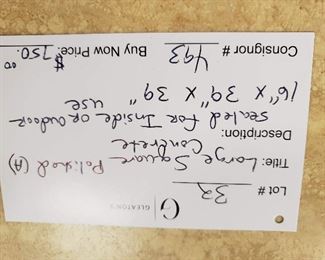 G
GLEATON'S
Lot # 32
Title: Large Square Polished (A)
Concrete
Description:
Sealed for Inside or outdoor
use
16" x 39" x 39"
Consignor # 493
Buy Now Price: $750.00